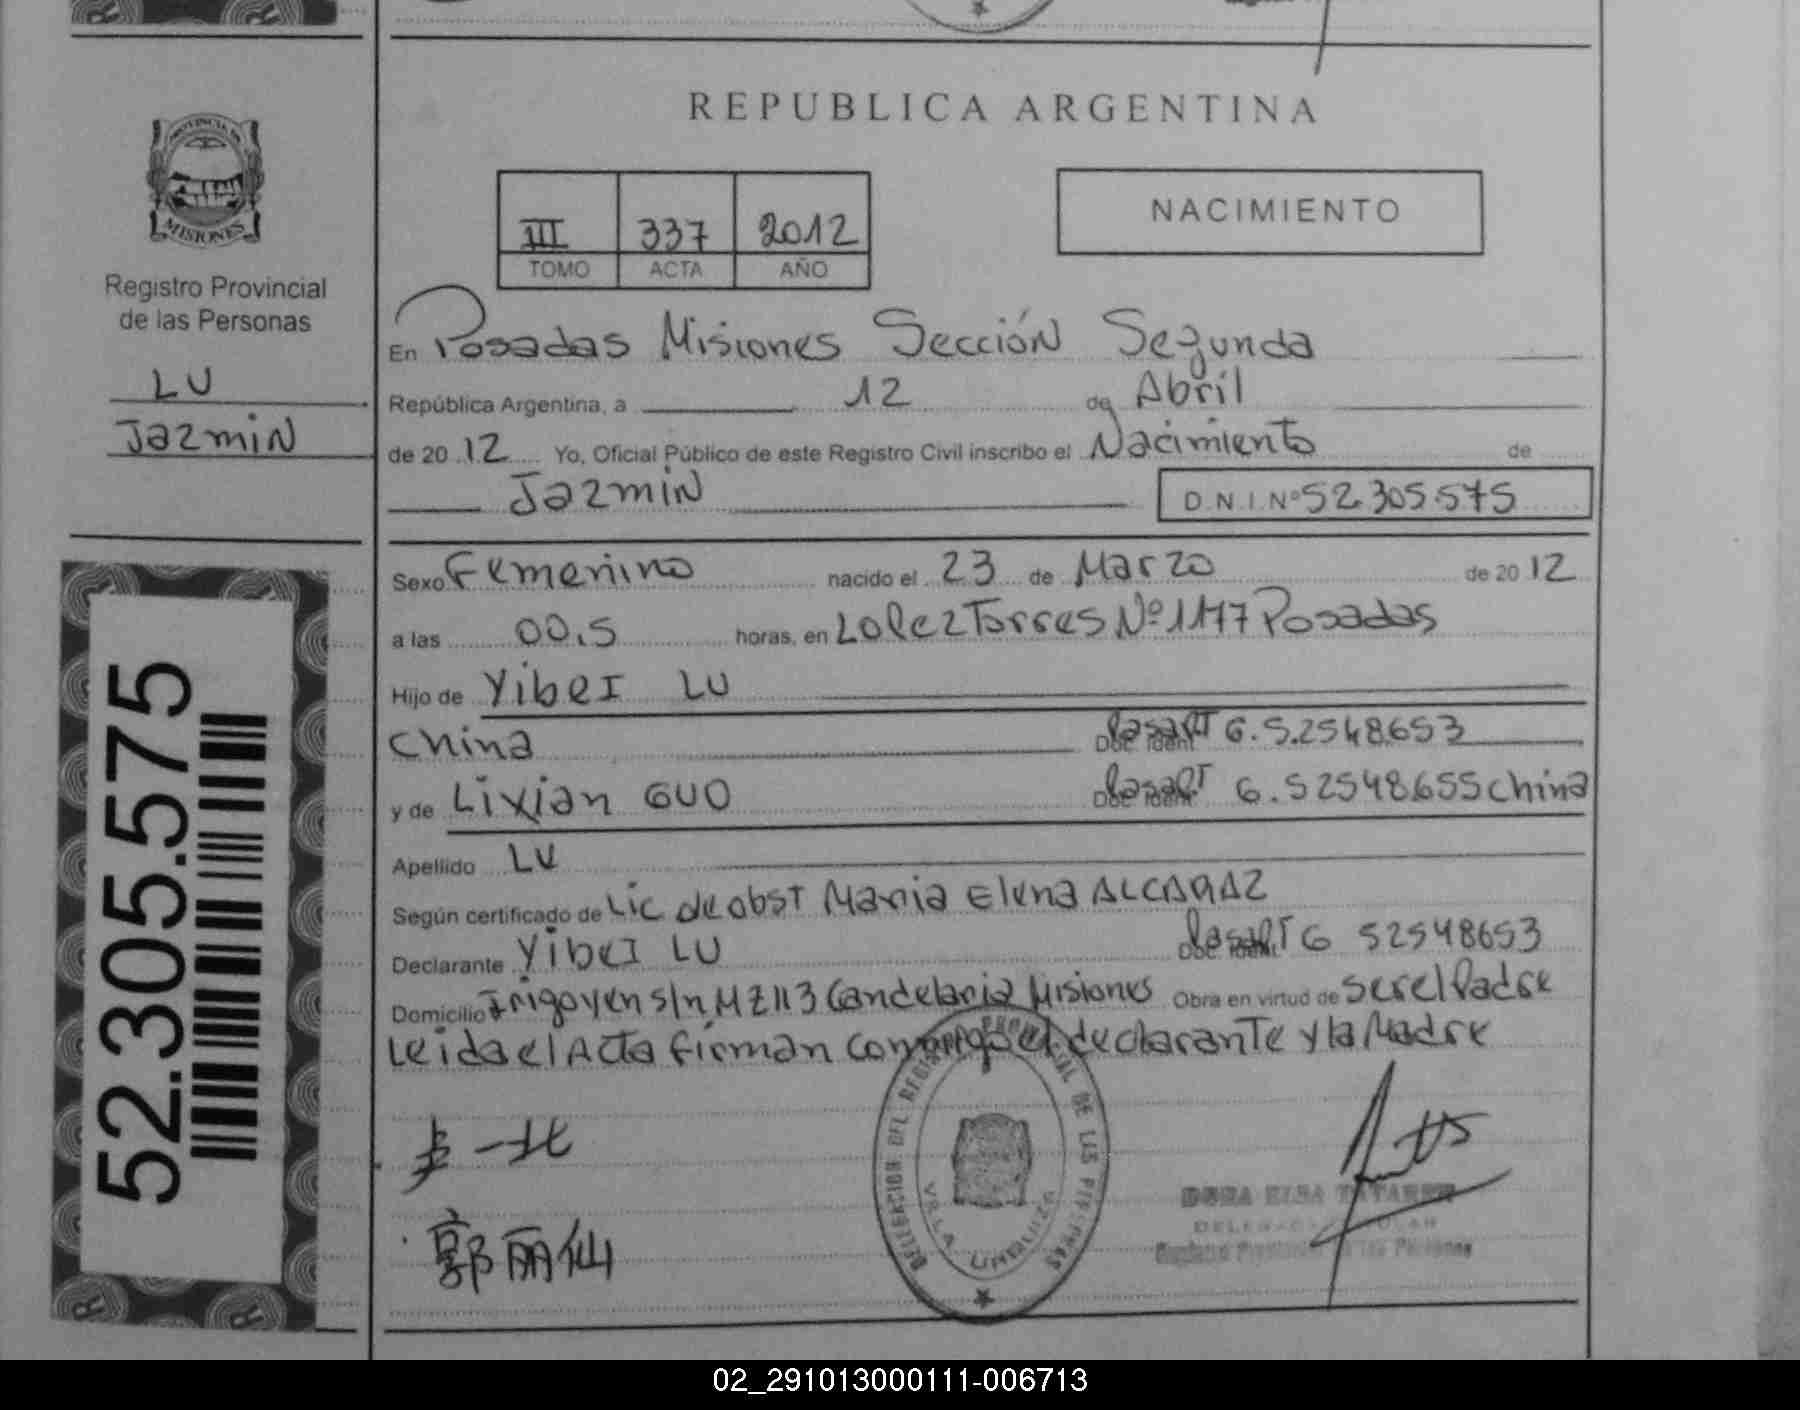 REPUBLICA ARGENTINA
PROVINCIA DE
MISIONES
Registro Provincial
de las Personas
LU
Jazmin
III 337 2012
TOMO ACTA AÑO
NACIMIENTO
En Posadas Misiones Sección Segunda
República Argentina, a 12 de Abril
de 2012 Yo, Oficial Público de este Registro Civil inscribo el Nacimiento de
Jazmin D.N.I. Nº 52.305.575
Sexo Femenino nacido el 23 de Marzo de 2012
a las 00.5 horas, en Lopez Torres Nº 1177 Posadas
Hijo de Yibei LU
China Doc. Ident. Pasapt G.52548653
y de Lixian GUO Doc. Ident. Pasapt G.52548655 China
Apellido LU
Según certificado de Lic de obst Maria Elena ALCARAZ
Declarante Yibei LU Doc. Ident. Pasapt G 52548653
Domicilio Irigoyen s/n MZ 113 Candelaria Misiones Obra en virtud de ser el Padre
Leida el Acta firman conmigo el declarante y la Madre
卢一北
郭丽仙
DELEGACION DEL REGISTRO PROVINCIAL DE LAS PERSONAS
VILLA
52.305.575
02_291013000111-006713